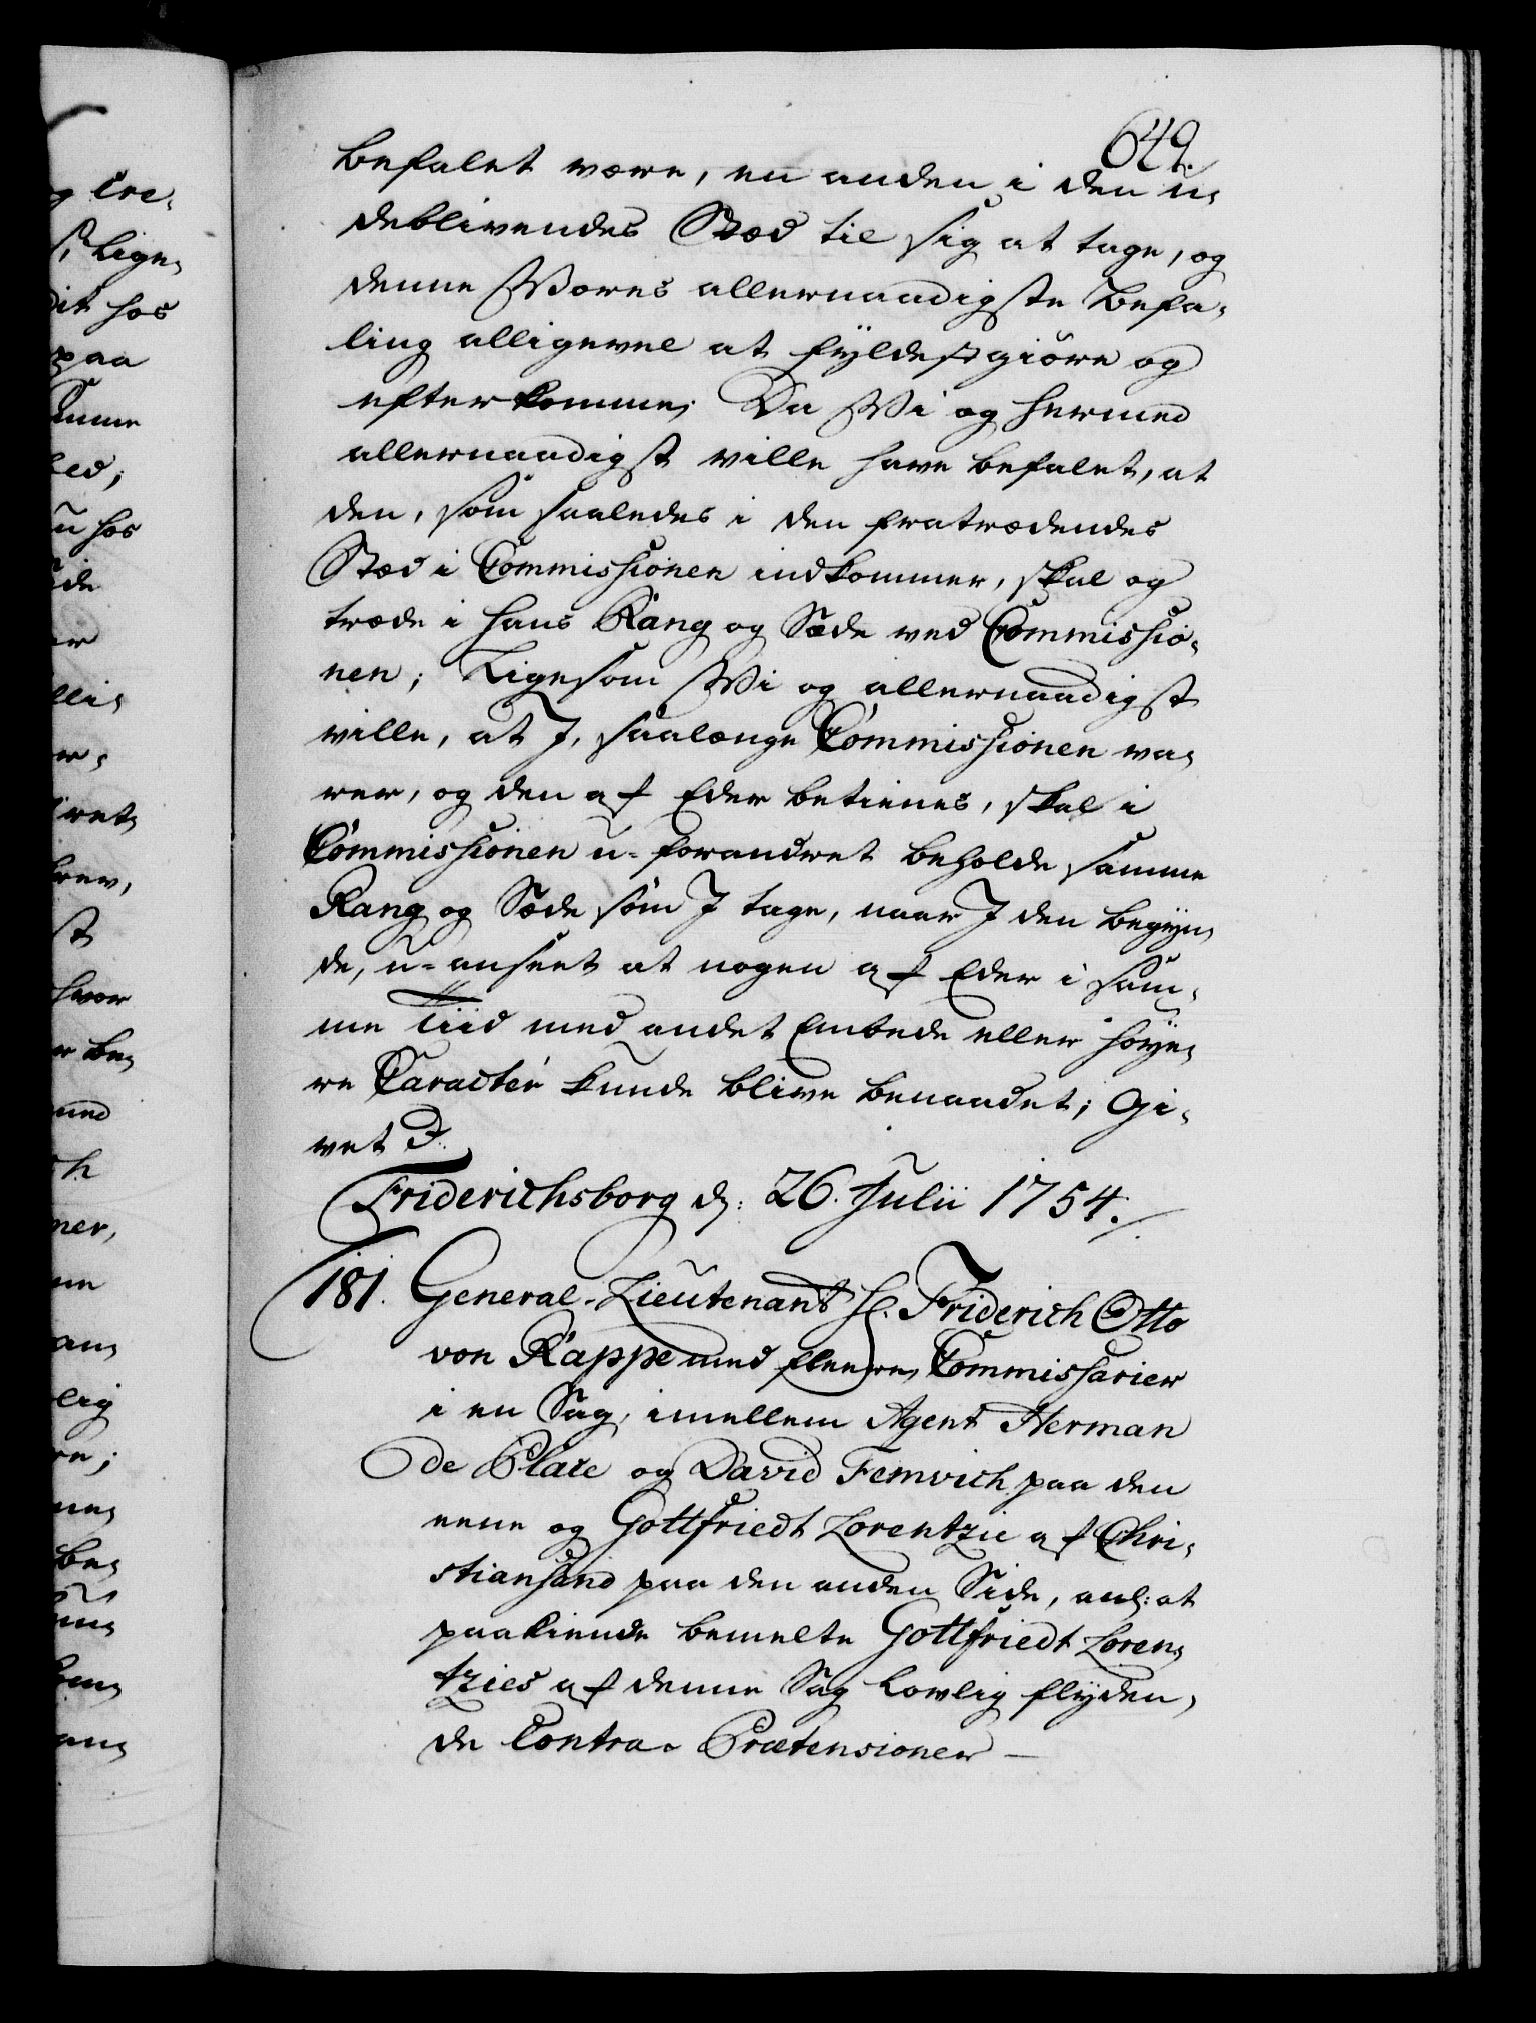 649.
befalet være, en anden i den u-
deblivendes Stæd til sig at tage, og
denne Vores allernaadigste Befa-
ling alligevel at fyldestgiøre og
efterkomme; Da Vi og hermed
allernaadigst ville have befalet, at
den, som saaledes i den fratrædendes
Stæd i Commissionen indkommer, skal og
træde i hans Rang og Sæde ved Commissio-
nen; Ligesom Vi og allernaadigst
ville, at I, saalænge Commissionen va-
rer, og den af Eder betienes, skal i
Commissionen u-forandret beholde samme
Rang og Sæde som I tage, naar I den begyn-
de, u-anseet at nogen af Eder i sam-
me Tiid med andet Embede eller høye-
re Caractér kunde blive benaadet; Gi-
vet
Friderichsborg d: 26. Julii 1754.
181. General-Lieutenant H. Friderich Otto
von Rappe med fleere Commissarier
i en Sag, imellem Agent Herman
de Plate og David Femvich paa den
eene og Gottfriedt Lorentzie af Chri-
stiansand paa den anden Side, anl: at
paakiende bemelte Gottfriedt Loren-
tzies af denne Sag lovlig flyden-
de Contra-Prætensioner —
og Cre-
Lige-
dit hos
paa
hos
hvor